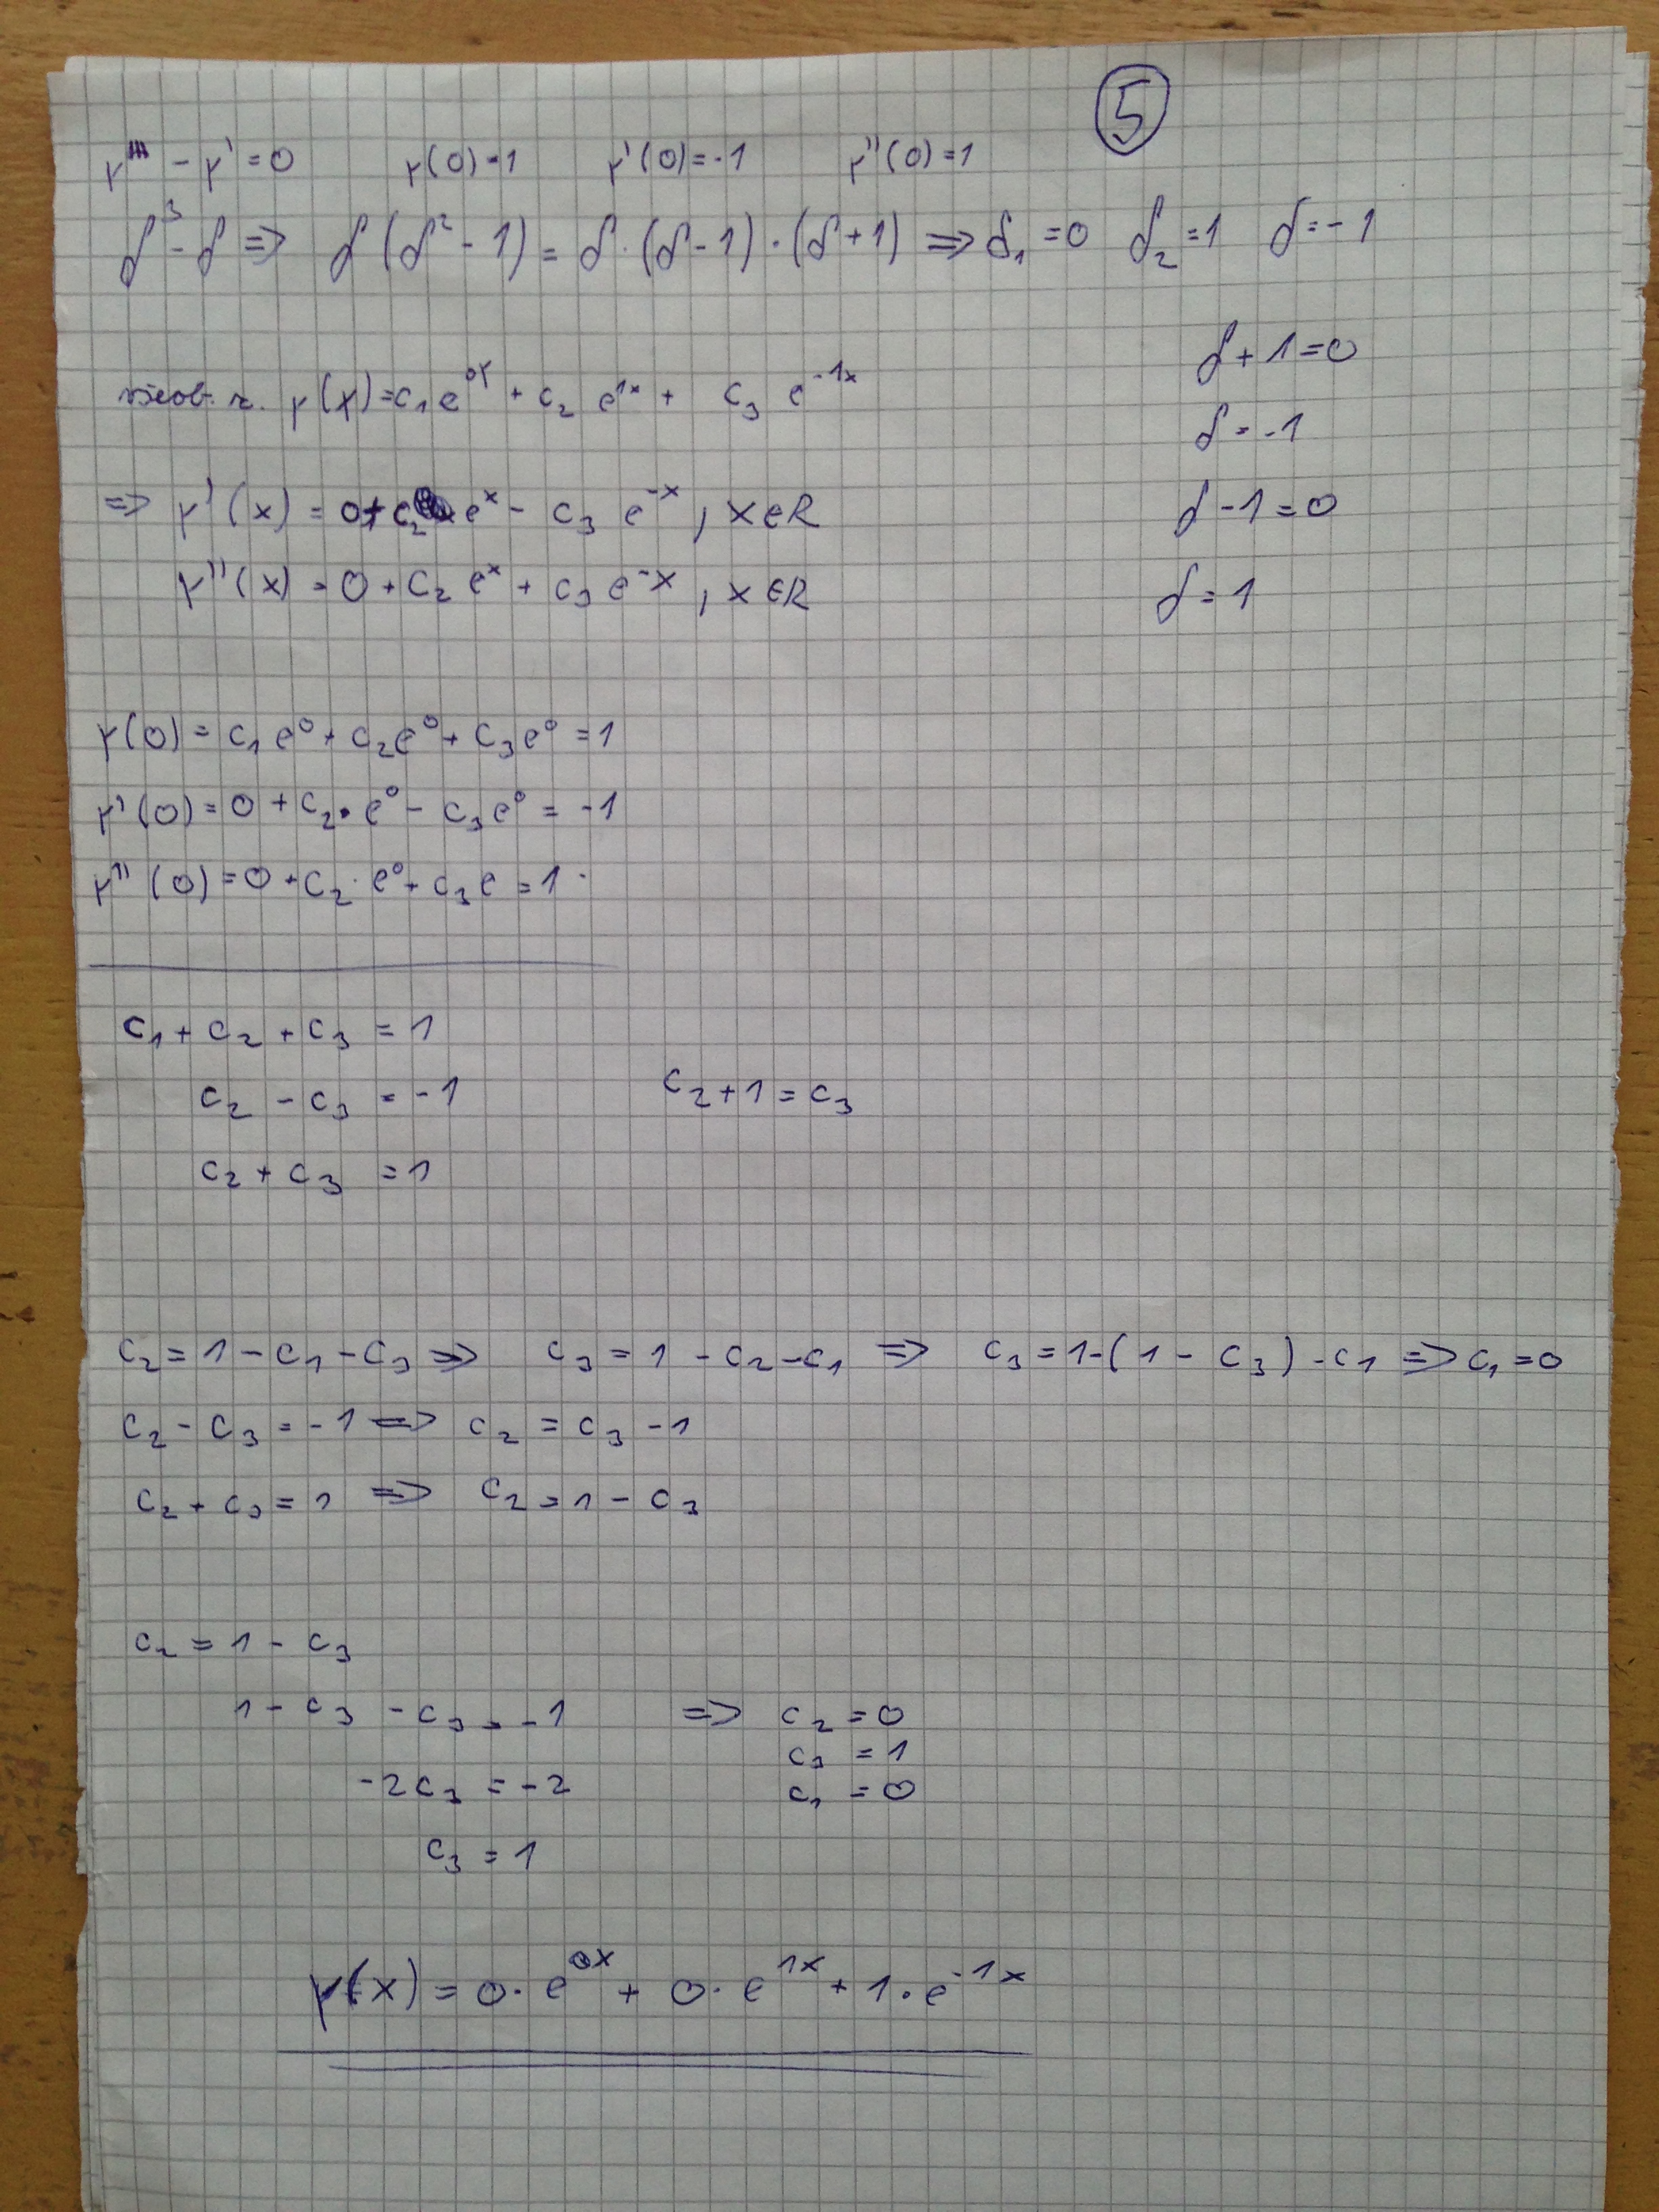 5
y''' - y' = 0 y(0) = 1 y'(0) = -1 y''(0) = 1
δ³ - δ => δ(δ² - 1) = δ·(δ - 1)·(δ + 1) => δ₁ = 0 δ₂ = 1 δ = -1
δ + 1 = 0
y(x) = c₁ e^{0x} + c₂ e^{1x} + c₃ e^{-1x}
δ = -1
=> y'(x) = 0 + c₂ e^x - c₃ e^{-x}, x ∈ R
δ - 1 = 0
y''(x) = 0 + c₂ e^x + c₃ e^{-x}, x ∈ R
δ = 1
y(0) = c₁ e⁰ + c₂ e⁰ + c₃ e⁰ = 1
y'(0) = 0 + c₂·e⁰ - c₃ e⁰ = -1
y''(0) = 0 + c₂·e⁰ + c₃ e = 1
c₁ + c₂ + c₃ = 1
c₂ - c₃ = -1 c₂ + 1 = c₃
c₂ + c₃ = 1
c₂ = 1 - c₁ - c₃ => c₃ = 1 - c₂ - c₁ => c₃ = 1 - (1 - c₃) - c₁ => c₁ = 0
c₂ - c₃ = -1 => c₂ = c₃ - 1
c₂ + c₃ = 1 => c₂ = 1 - c₃
c₂ = 1 - c₃
1 - c₃ - c₃ = -1 => c₂ = 0
c₃ = 1
-2c₃ = -2 c₁ = 0
c₃ = 1
y(x) = 0·e^{0x} + 0·e^{1x} + 1·e^{-1x}